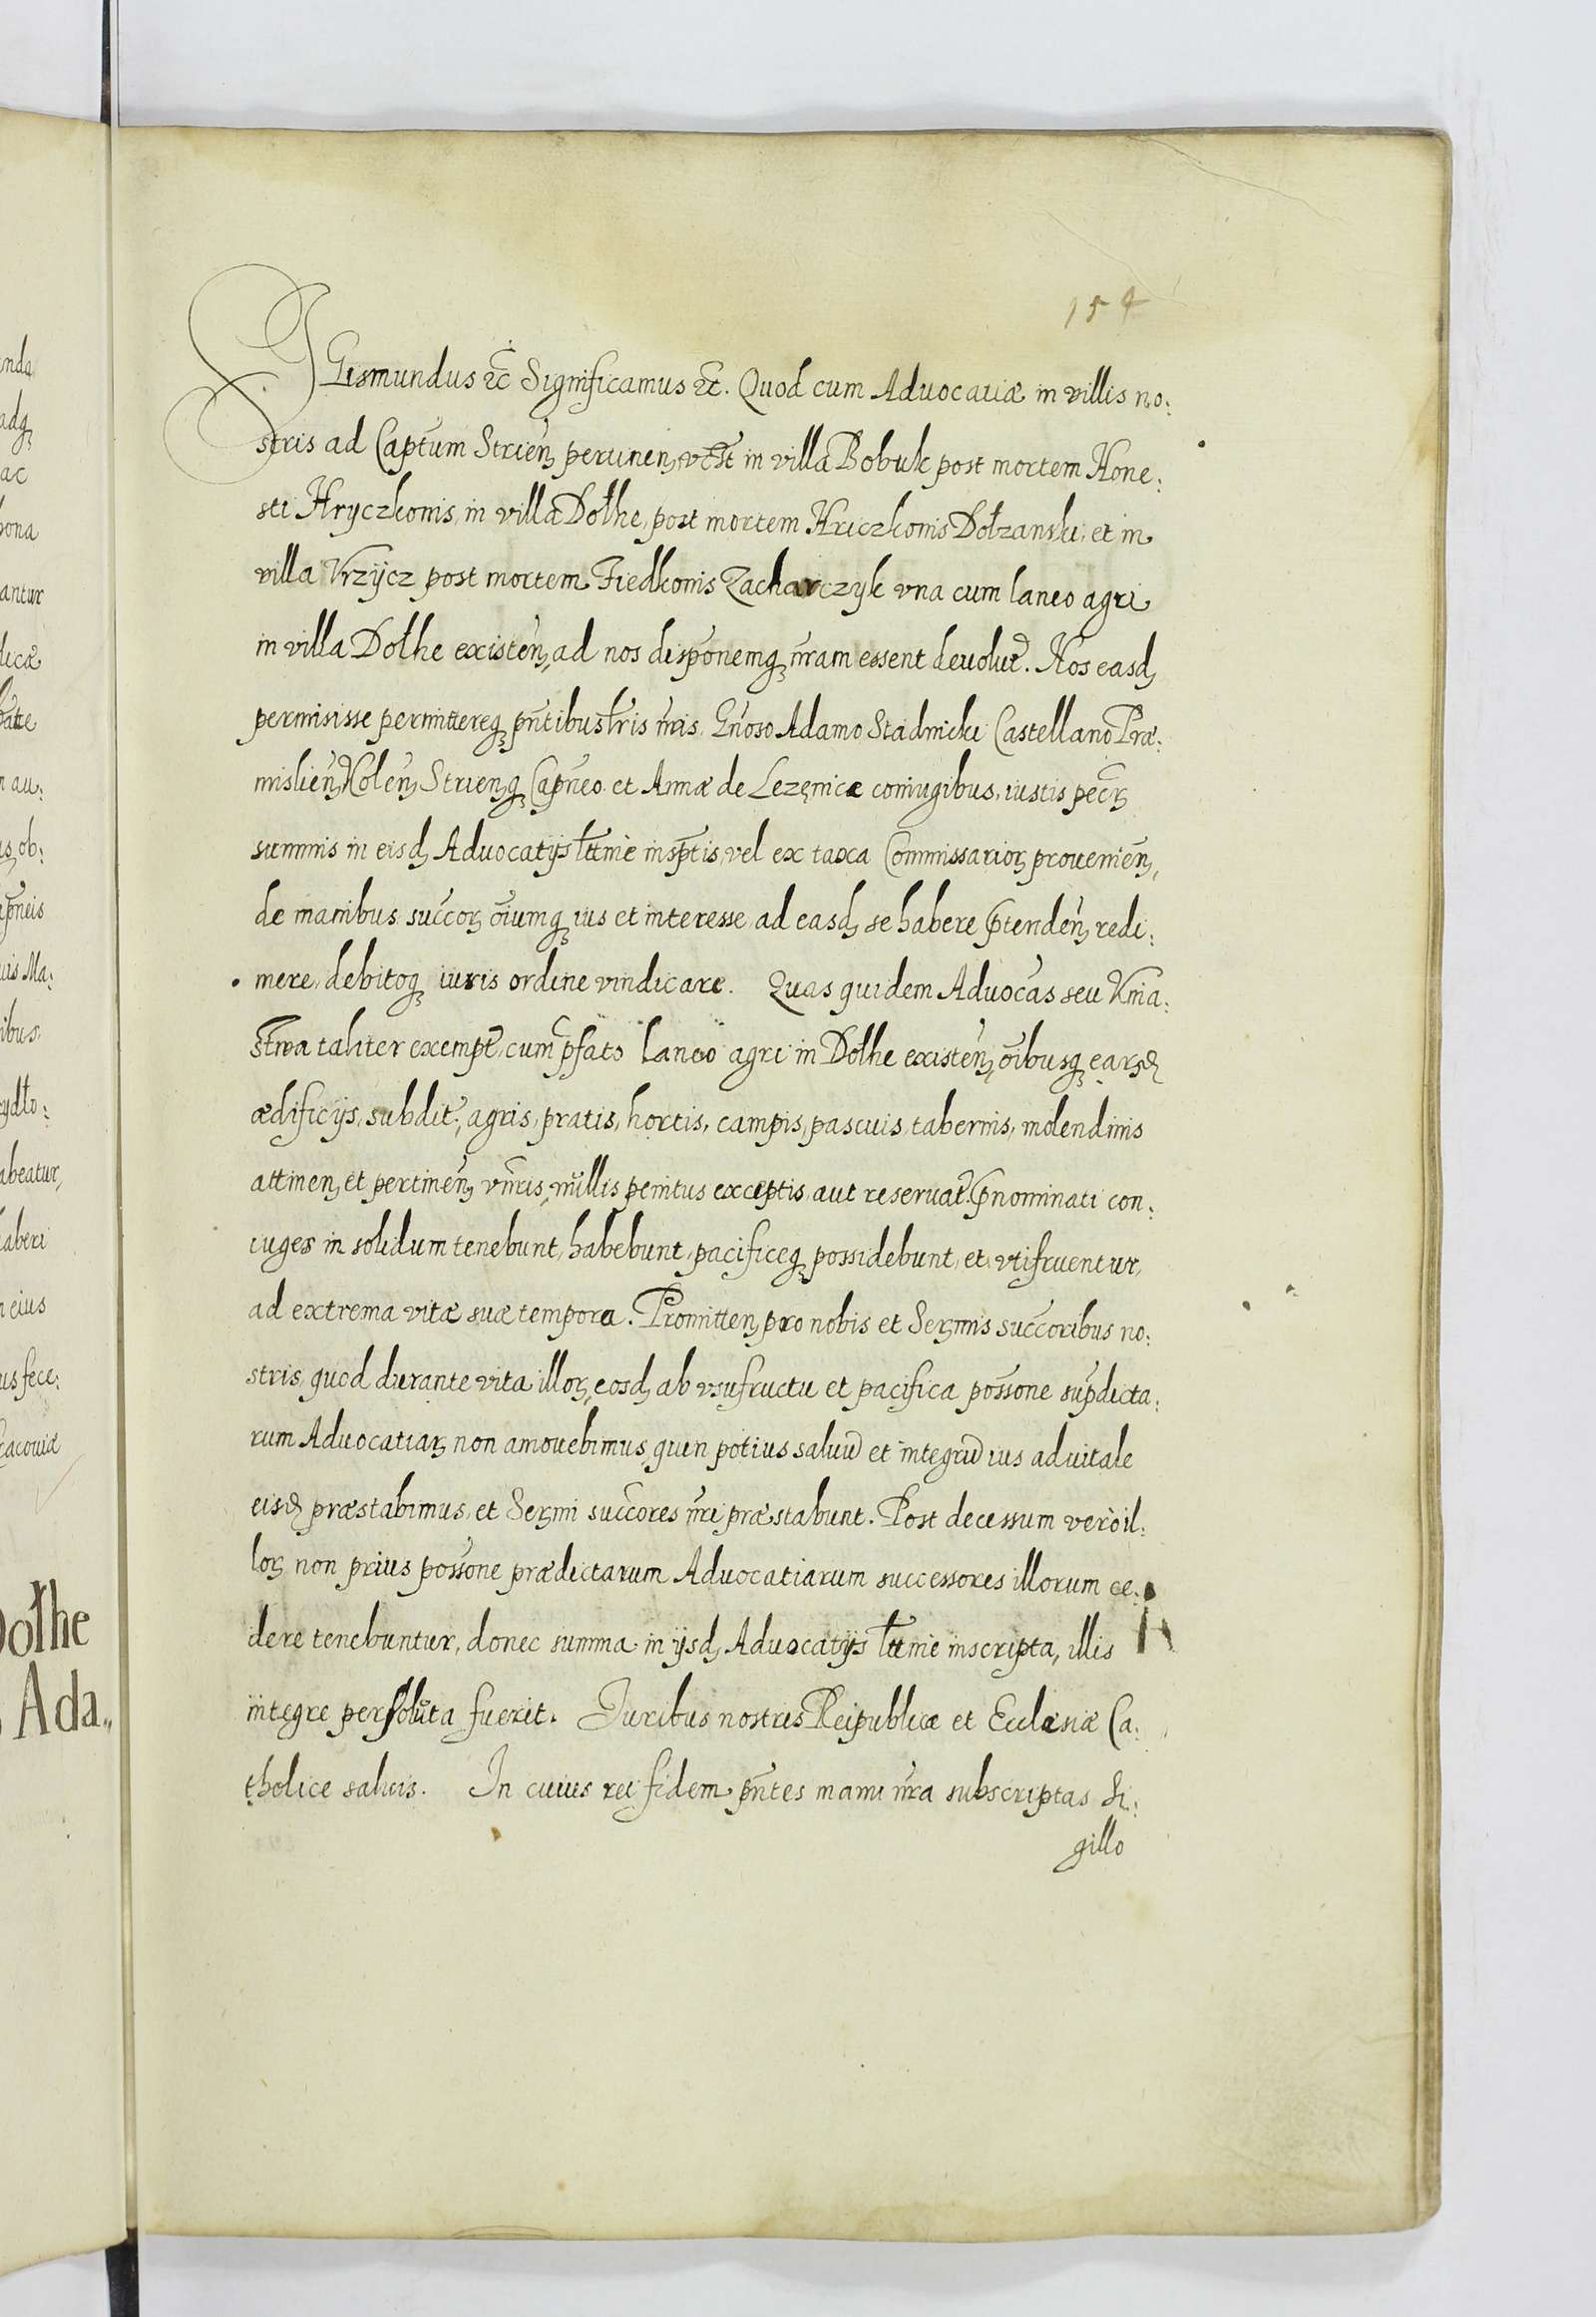 154
SIGismundus etc̃ Significamus etc̃. Quod cum Aduocatiæ in villis no:
stris ad Capt̃um Strien̄ pertinen̄, vt̃ st̃ in villa Bobuk post mortem Hone:
sti Hryczkonis, in villa Dołhe, post mortem Hriczkonis Dołzanski, et in
villa Vrzÿcz post mortem Fiedkonis Zacharczyk vna cum laneo agri
in villa Dołhe existen̄, ad nos disp̃onemq̨ nr̃am essent deuolut̃. Nos easd̨
permisisse permittereq̨ pñtibus lr̃is nr̃is, Gñoso Adamo Stadnicki Castellano Præ:
mislien̄ Kolen̄ Strien̄q̨ Capñeo et Annæ de Lezęnice coniugibus, iustis pec̃r̨
summis in eisd̨ Aduocatijs lt̃time insp̃tis, vel ex taxa Commissarior̨ prouenien̄,
de manibus succ̃or̨ õiumq̨ ius et interesse ad easd̨ se habere p̃tenden̄ redi:
mere, debitoq̨ iuris ordine vindicare. Quas quidem Aduocãs seu Knia:
stwa taliter exempt̃, cum p̃fato laneo agri in Dołhe existen̄, õibusq̨ ear̨d̨
ædificijs, subdit̃, agris, pratis, hortis, campis, pascuis, tabernis, molendinis
attinen̄ et pertinen̄ vñris, nullis penitus exceptis aut reseruat̃. P̃nominati con:
iuges in solidum tenebunt, habebunt, pacificeq̨ possidebunt, et vtifruentur,
ad extrema vitæ suæ tempora. Promitten̄ pro nobis et Ser̨mis succ̃oribus no:
stris, quod durante vita illor̨, eosd̨ ab vsufructu et pacifica poss̃one sup̃dicta:
rum Aduocatiar̨ non amouebimus, quin potius saluũ et integrũ ius aduitale
eisd̨ præstabimus, et Ser̨mi succ̃ores nr̃i præstabunt. Post decessum verò il:
lor̨ non prius poss̃one prædictarum Aduocatiarum successores illorum ce:
dere tenebuntur, donec summa in ijsd̨ Aduocatijs lt̃time inscripta, illis
integre persoluta fuerit. Iuribus nostris Reipublicæ et Ecclesiæ Ca:
tholice saluis. In cuius rei fidem pñtes manu nr̃a subscriptas Si:
gillo